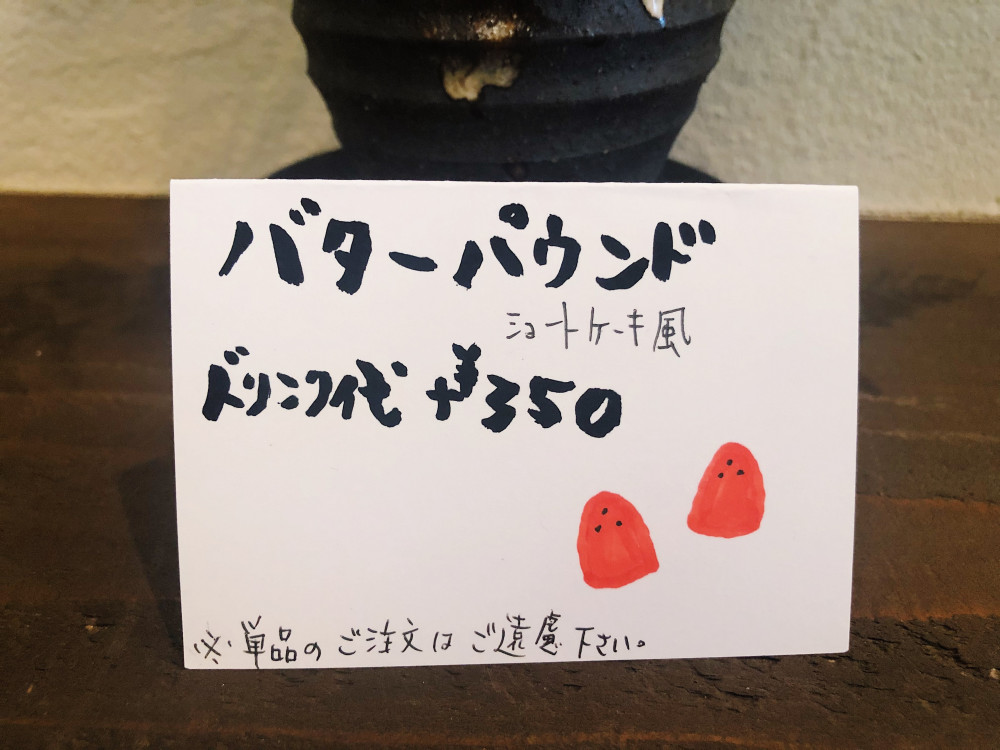 バターパウンド
ショートケーキ風
ドリンク代 +¥350
※単品のご注文はご遠慮下さい。